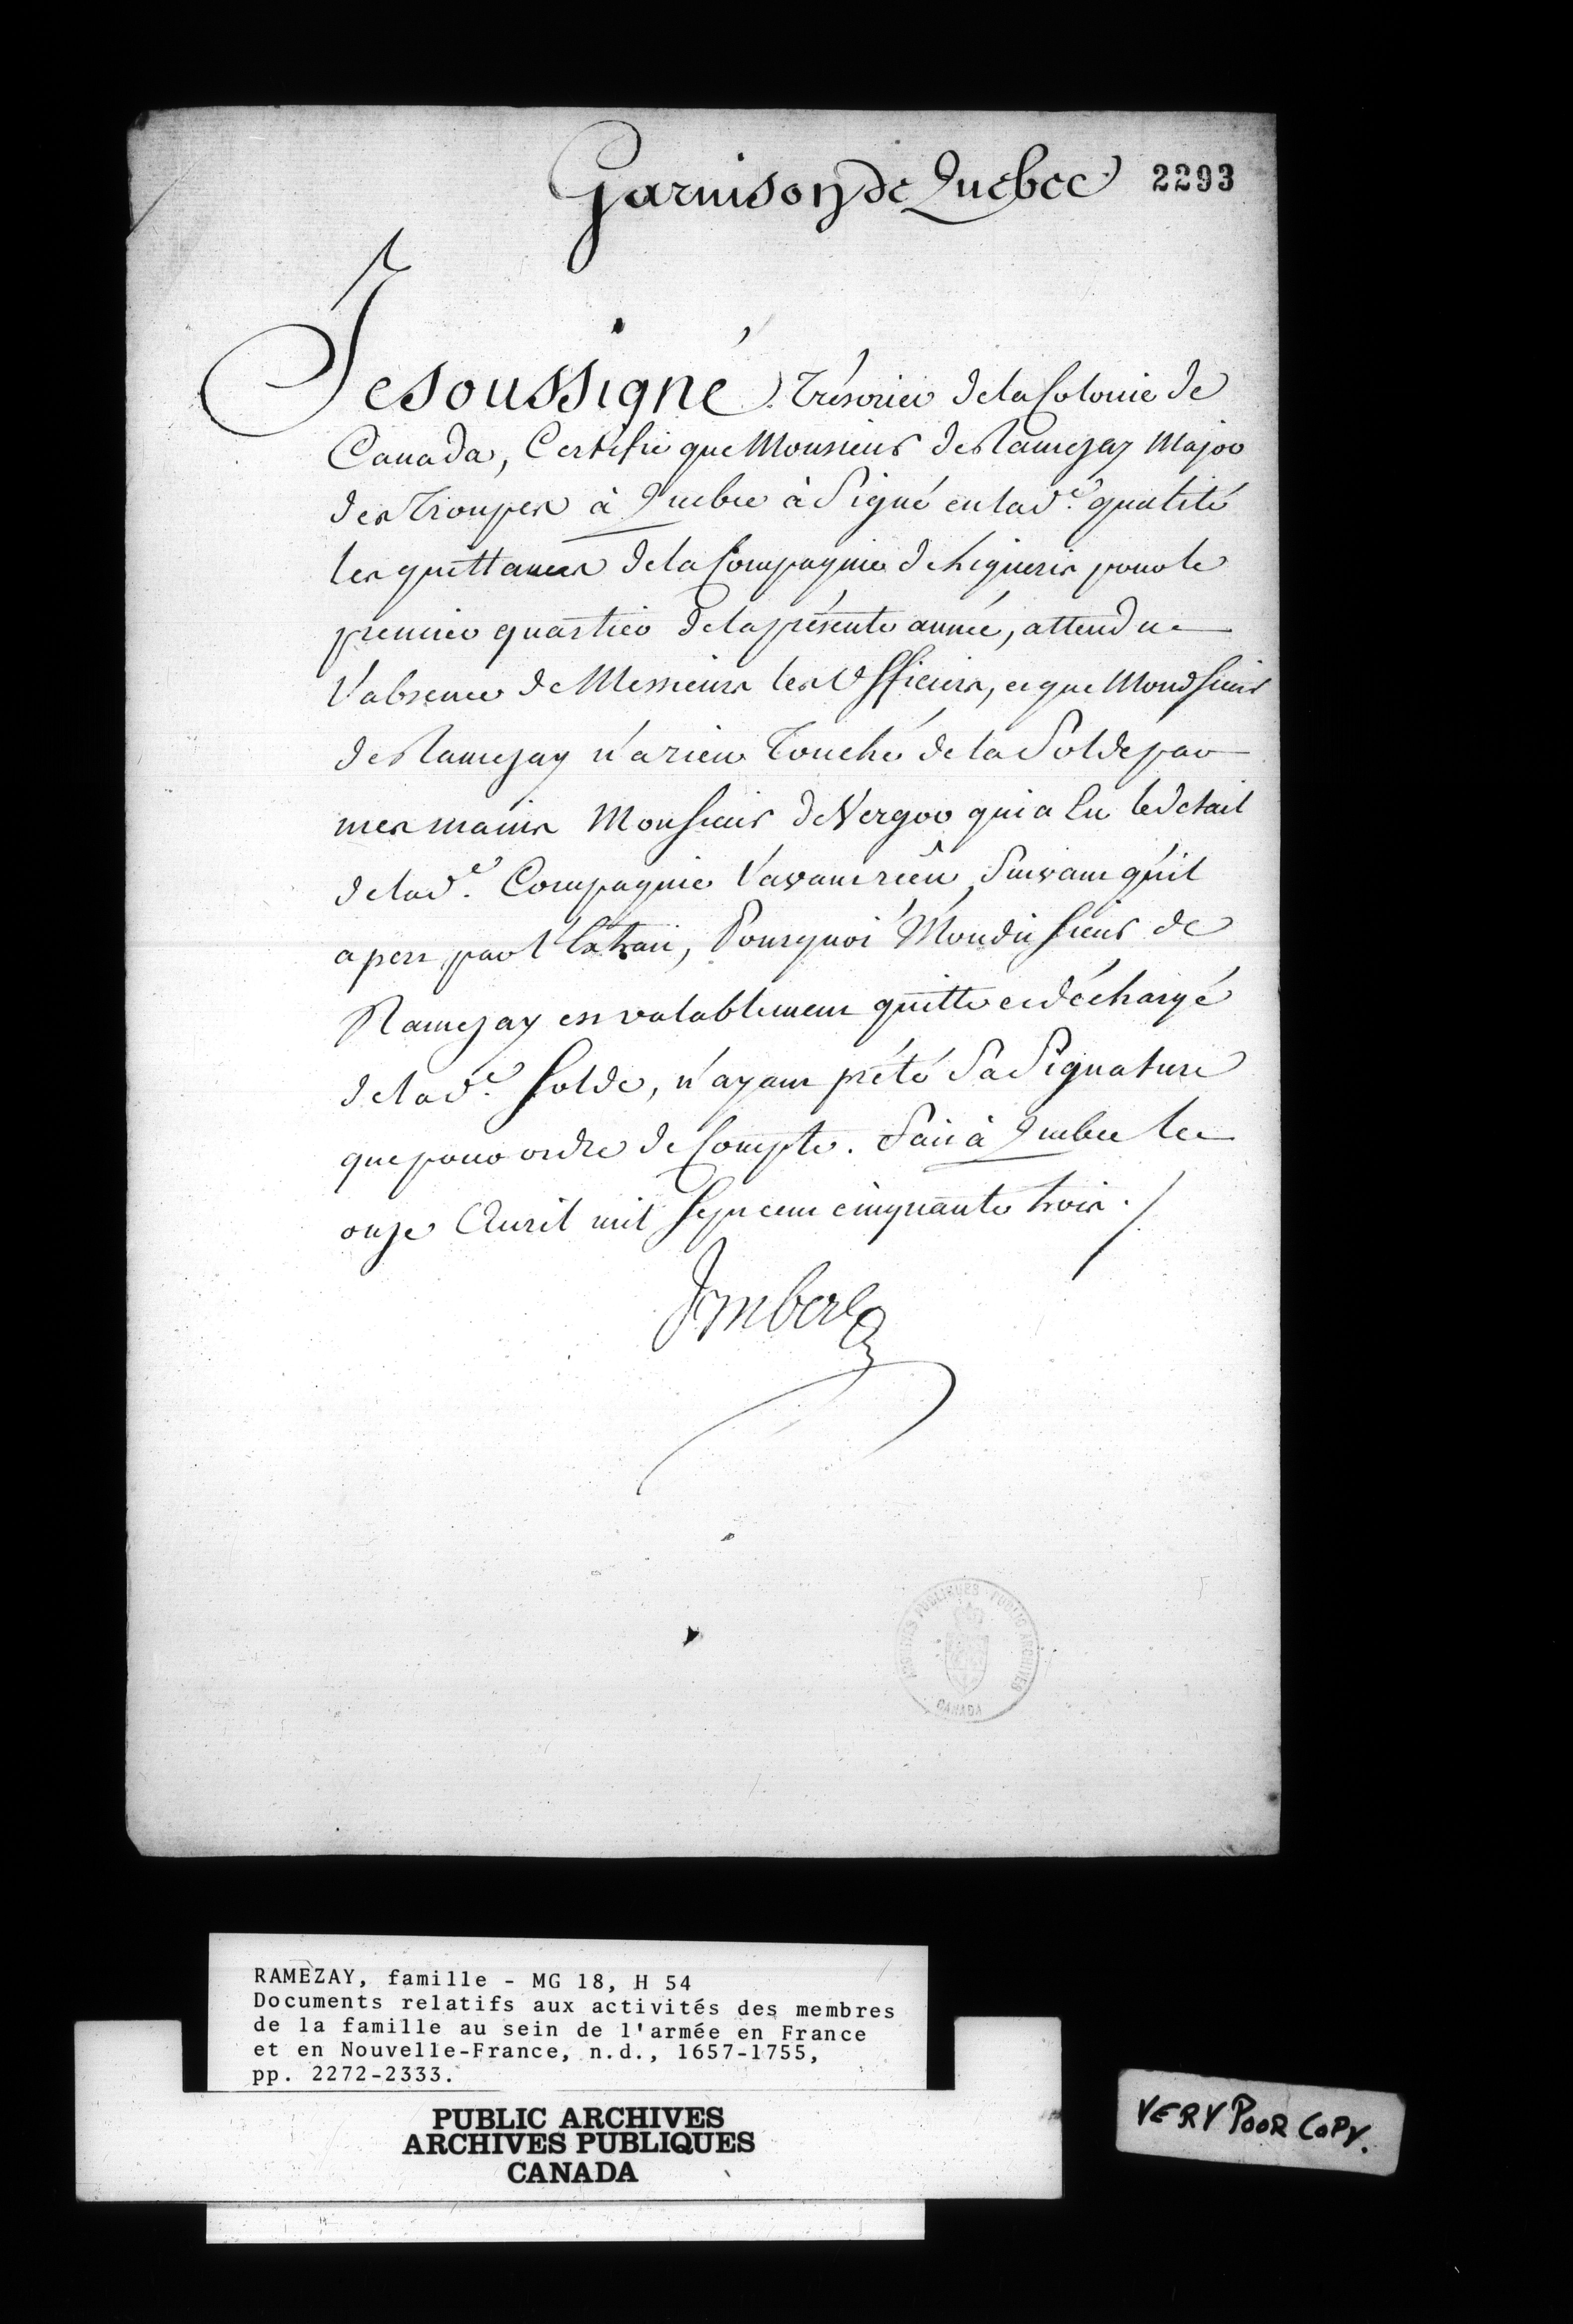 Garnison de Quebec
2293
Je soussigné Trésorier de la Colonie de
Canada, Certifie que Monsieur de Ramezay Major
des Troupes à Quebec à Signé en lad.e qualité
les quittances de la Compagnie de Ligneris pour le
premier quartier de la présente année, attendu
l'absence de Messieurs les Officiers, et que Mond Sieur
de Ramezay n'a rien Touché de la Solde par
mes mains Monsieur de Vergor qui a Eu le detail
de lad.e Compagnie l'ayant reçû Suivant qu'il
apert par l'Extrait, Pourquoi Mondit Sieur de
Ramezay est valablement quitte et déchargé
de lad.e Solde, n'ayant prété Sa Signature
que pour ordre de Compte. Fait à Quebec le
onze Avril mil Sept cent cinquante trois ./
Imbert
ARCHIVES PUBLIQUES · PUBLIC ARCHIVES
CANADA
RAMEZAY, famille - MG 18, H 54
Documents relatifs aux activités des membres
de la famille au sein de l'armée en France
et en Nouvelle-France, n.d., 1657-1755,
pp. 2272-2333.
PUBLIC ARCHIVES
ARCHIVES PUBLIQUES
CANADA
VERY POOR COPY.